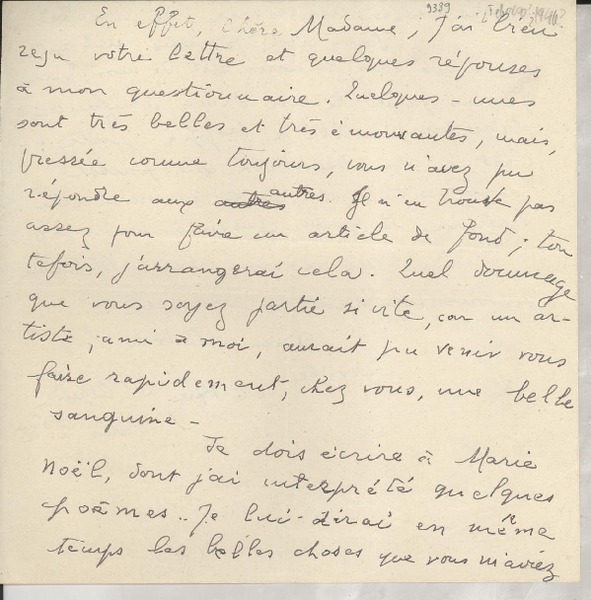 9389
En effet, chère Madame, j'ai bien
reçu votre lettre et quelques réponses
à mon questionnaire. Quelques-unes
sont très belles et très émouvantes, mais,
pressée comme toujours, vous n'avez pu
répondre aux autres autres. Je n'en trouve pas
assez pour faire un article de fond; tou
tefois, j'arrangerai cela. Quel dommage
que vous soyez partie si vite, car un ar-
tiste, ami à moi, aurait pu venir vous
faire rapidement, chez vous, une belle
sanguine -
Je dois écrire à Marie
Noël, dont j'ai interprété quelques
poèmes.. Je lui dirai en même
temps les belles choses que vous m'aviez